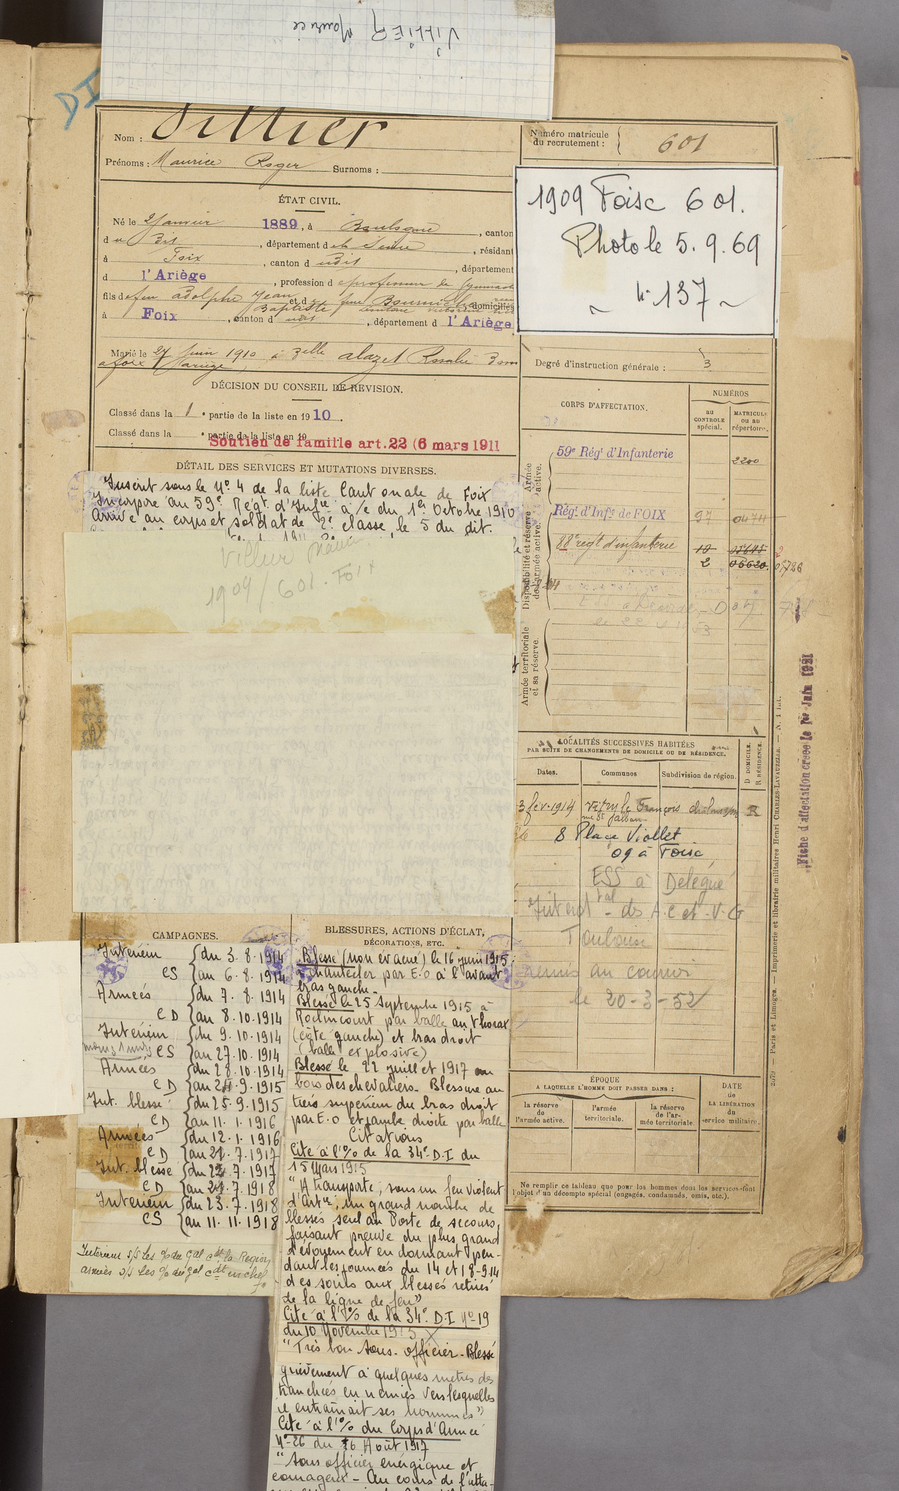 VILLIER, Maurice
DI
Nom : Villier
Prénoms : Maurice Roger Surnoms :
Numéro matricule
du recrutement : 601
1909 Foix 601.
Photo le 5.9.69
~ N. 137 ~
ÉTAT CIVIL.
Né le 2 Janvier 1889, à , canton
d , département de la Seine, résidant
à Foix, canton d udit, département
d l'Ariège, profession d professeur de gymnast
fils de feu Adolphe Jean et d
Baptiste , domiciliés
à Foix, canton d udit, département d l'Ariège
Marié le 27 Juin 1910 à Delle Alazet Rosalie
à Foix Ariège
Degré d'instruction générale : 3
DÉCISION DU CONSEIL DE REVISION.
Classé dans la 1e partie de la liste en 1910.
Classé dans la e partie de la liste en 19
Soutien de famille art. 22 (6 mars 1911
DÉTAIL DES SERVICES ET MUTATIONS DIVERSES.
Inscrit sous le No 4 de la liste Cantonale de Foix
Incorporé au 59e Régt d'Infie à/c du 1er Octobre 1910
Arrivé au corps et soldat de 2e classe le 5 du dit.
Villier Maurice
1909/601. Foix
CORPS D'AFFECTATION.
NUMÉROS
AU CONTROLE spécial.
MATRICULE OU AU répertoire.
Armée active.
59e Régt d'Infanterie 2200
Disponibilité et réserve de l'armée active.
Régt d'Infie de FOIX 97 04711
88e régt d'infanterie 10
2 06620. 05786
Armée territoriale et sa réserve.
LOCALITÉS SUCCESSIVES HABITÉES
PAR SUITE DE CHANGEMENTS DE DOMICILE OU DE RÉSIDENCE.
Dates. Communes Subdivision de région. D. DOMICILE. R. RÉSIDENCE.
3 fév. 1914 Vitry le François R
8 Place Viollet
09 à Foix
ESS à Délégué
Intertal des A.C et V.G
Toulouse
remis au courrier
le 20-3-52
Fiche d'affectation créée le 1er Juin 1921
Paris et Limoges. — Imprimerie et librairie militaires Henri CHARLES-LAVAUZELLE.
CAMPAGNES.
Intérieur { du 3.8.1914
CS { au 6.8.1914
Armées { du 7.8.1914
CD { au 8.10.1914
Intérieur { du 9.10.1914
CS { au 27.10.1914
Armées { du 28.10.1914
CD { au 24.9.1915
Int. blessé { du 25.9.1915
CD { au 11.1.1916
Armées { du 12.1.1916
CD { au 21.7.1917
Int. blessé { du 22.7.1917
CD { au 22.7.1918
Intérieur { du 23.7.1918
CS { au 11.11.1918
Intérieur s/s les o/ du Gal Cdt la Région
armées s/s les o/ du Gal Cdt en chef
BLESSURES, ACTIONS D'ÉCLAT,
DÉCORATIONS, ETC.
Blessé (non évacué) le 16 juin 1915
à Chantecler par E.O à l'avant
bras gauche.
Blessé le 25 Septembre 1915 à
Roclincourt par balle au thorax
(côté gauche) et bras droit
(balle explosive)
Blessé le 22 juillet et 1917 au
bois des chevaliers. Blessure au
tiers supérieur du bras droit
par E.O et jambe droite par balle
Citations
Cité à l'o/ de la 34e D.I du
15 Mars 1915
"A transporté, sous un feu violent
d'Artie, un grand nombre de
blessés seul au Poste de secours,
faisant preuve du plus grand
dévouement en donnant pen-
dant les journées du 14 et 18-9-14
des soins aux blessés retirés
de la ligne de feu"
Cité à l'o/ de la 34e D.I No 19
du 10 Novembre 1915
"Très bon sous-officier. Blessé
grièvement à quelques mètres des
tranchées ennemies vers lesquelles
il entraînait ses hommes"
Cité à l'o/ du Corps d'Armée
No 26 du 16 Août 1917
"Sous officier énergique et
courageux. Au cours de l'atta-
ÉPOQUE
A LAQUELLE L'HOMME DOIT PASSER DANS :
la réserve de l'armée active.
l'armée territoriale.
la réserve de l'armée territoriale.
DATE
DE LA LIBÉRATION
du service militaire.
Ne remplir ce tableau que pour les hommes dont les services font
l'objet d'un décompte spécial (engagés, condamnés, omis, etc.).